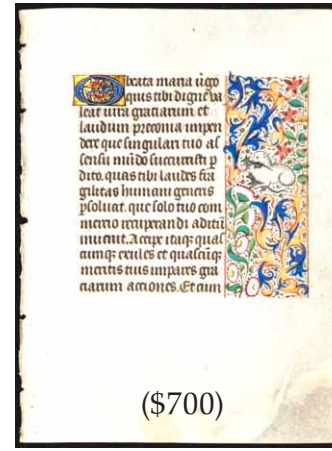 O beata maria v̄go
quis tibi digne va
leat iura graciarum et
laudium preconia impen
dere que singulari tuo as
sensu mūdo succuristi p
dito. quas tibi laudes fra
gilitas humani generis
psoluat. que solo tuo com
mercio recuperandi aditū
inuenit. Accipe itaq quas
cumq exiles et quascūq
meritis tuis impares gra
ciarum acciones. Et cum
($700)